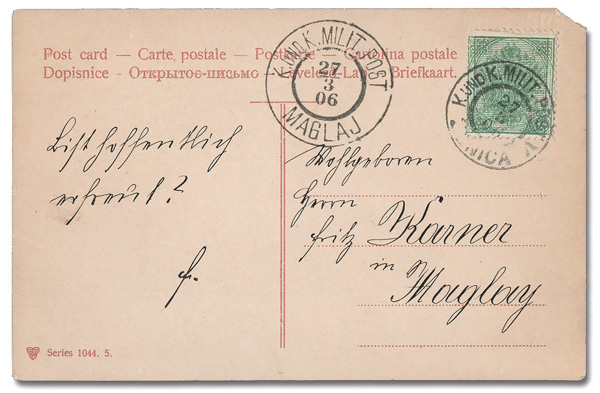 Post card — Carte postale — Postkarte — Cartolina postale
Dopisnice - Открытое-письмо - Levelező-Lap - Briefkaart.
K. UND K. MILIT. POST
27
3
06
MAGLAJ
K. UND K. MILIT. POST
27
Bist hoffentlich
erfreut?
F.
Wohlgeboren
Herrn
Fritz Karner
in
Maglay
Series 1044. 5.